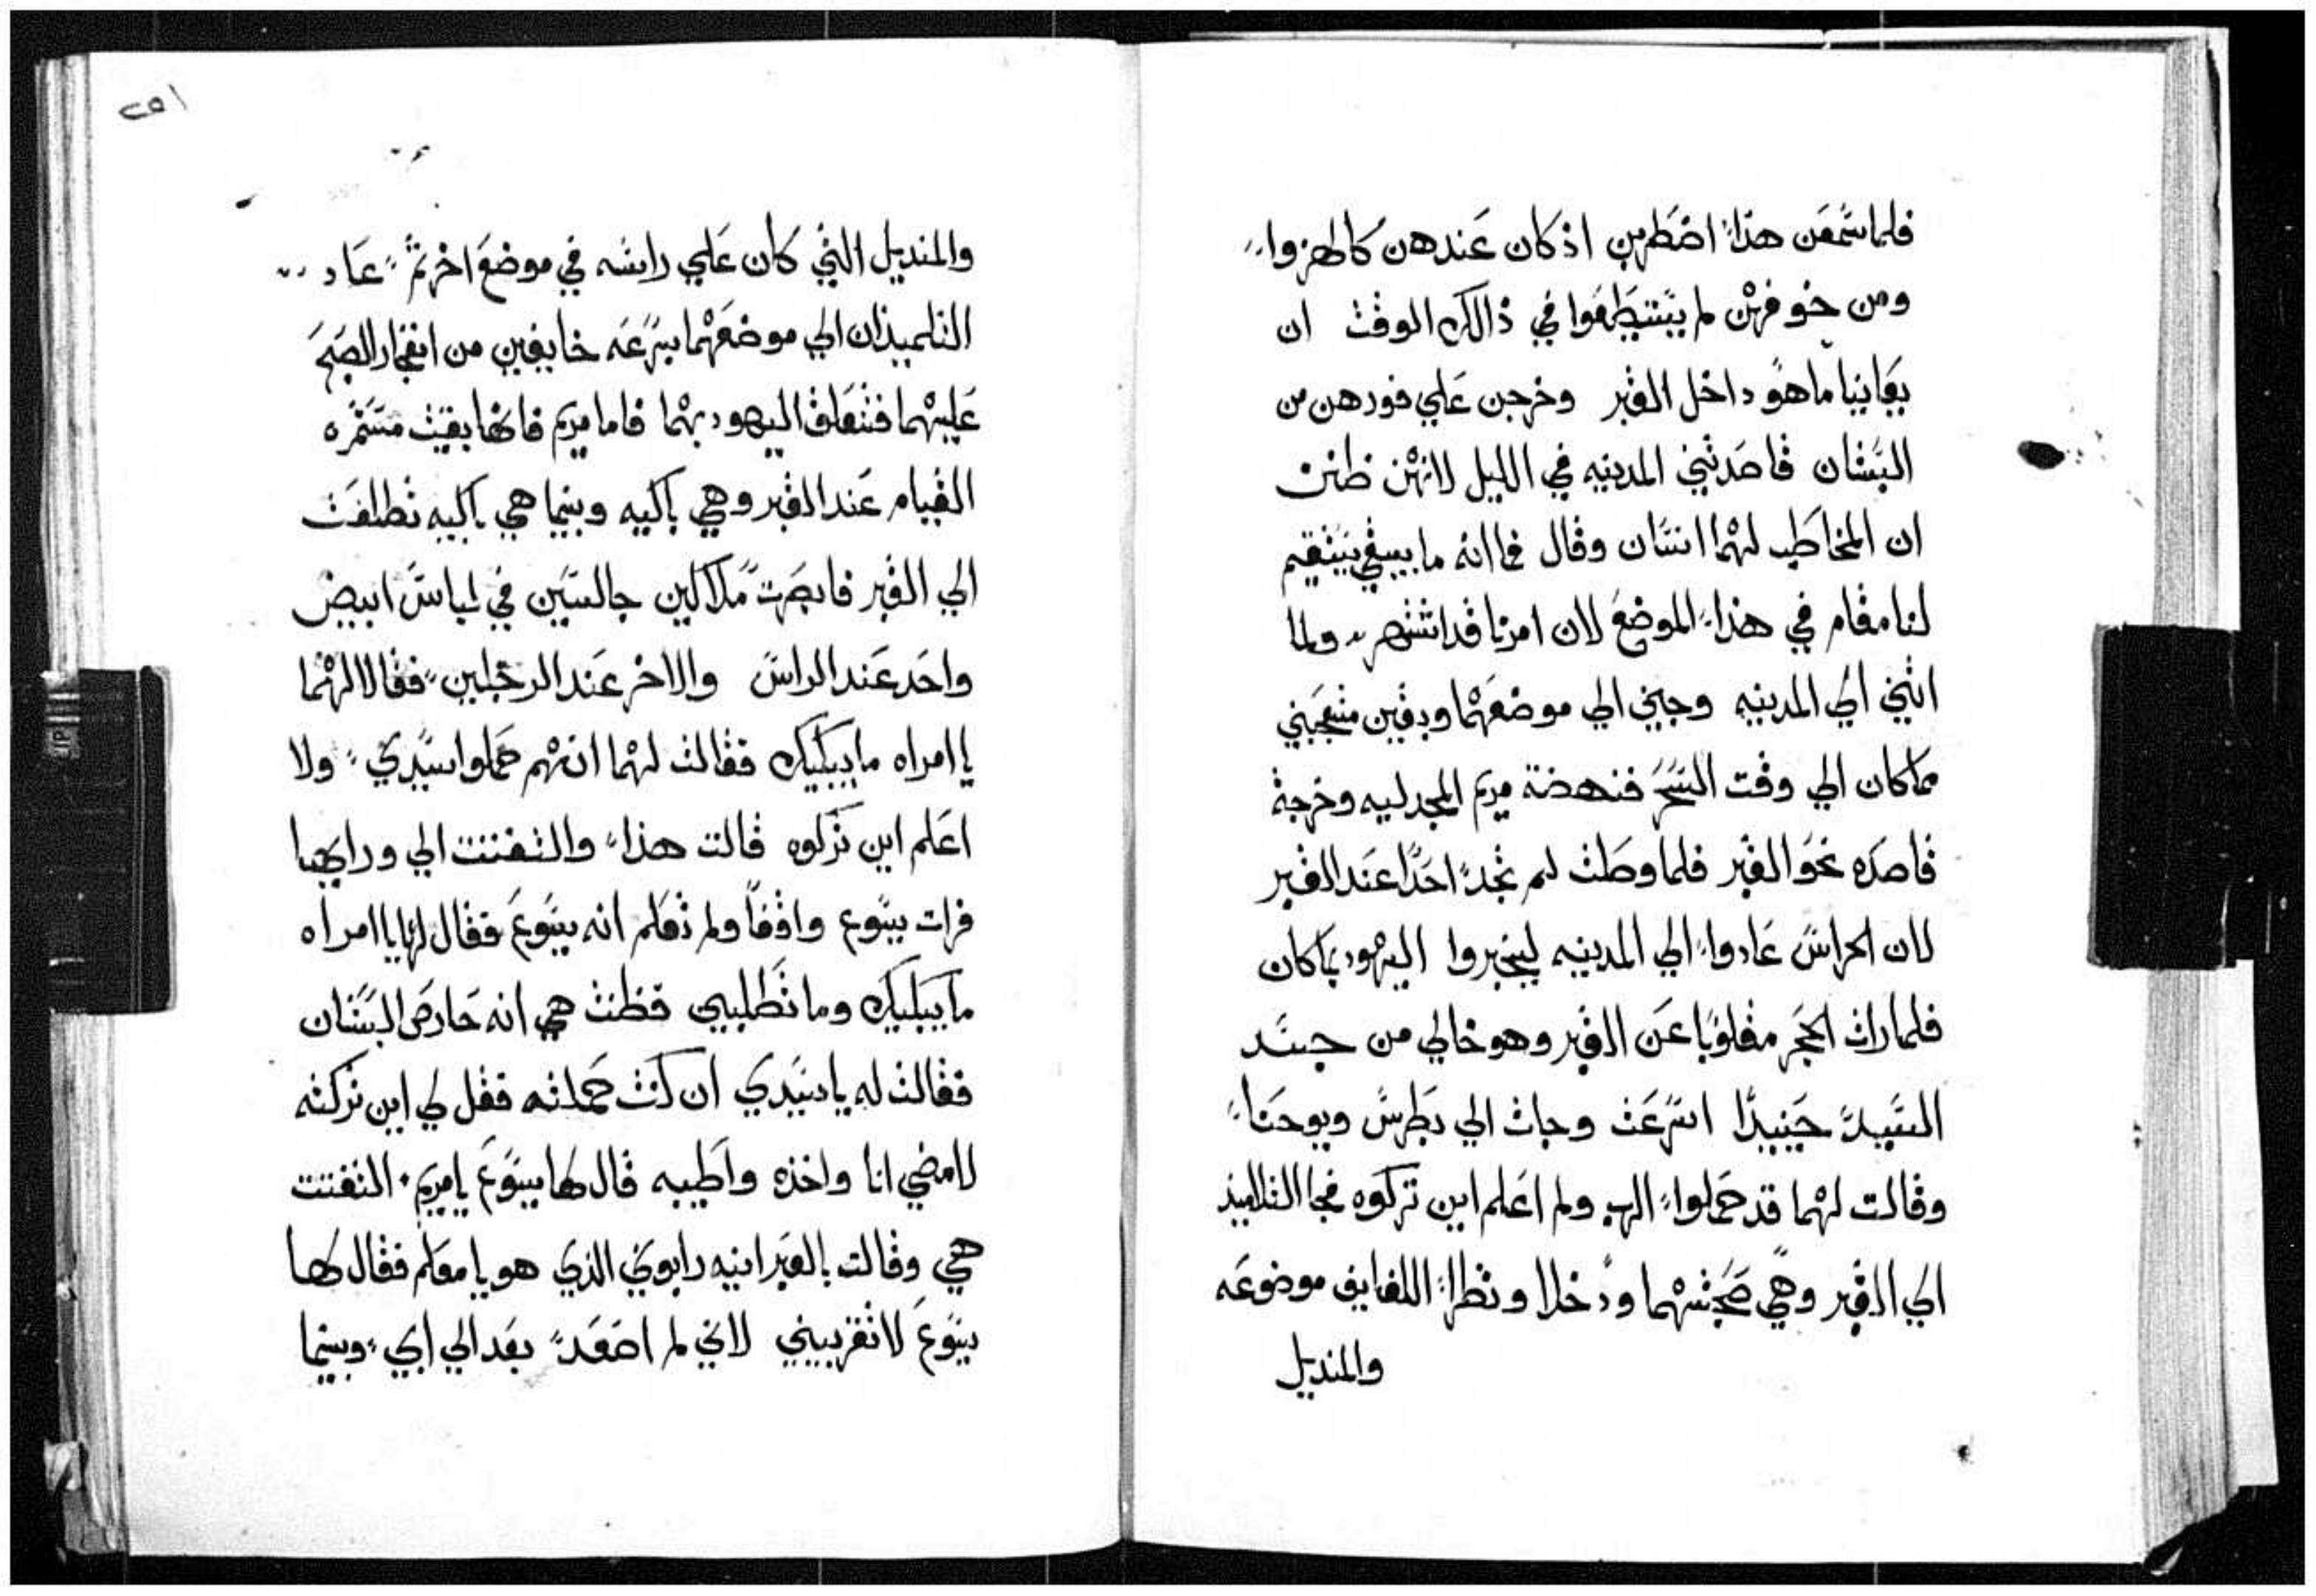 فلما سمعن هذا اضطربن اذ كان عندهن كالهزوا
ومن خوفهن لم يستطيعوا في ذالك الوقت ان
يعاينيا ما هو داخل القبر وخرجن علي فورهن من
البستان قاصدتني المدينيه في الليل لانهن ظنن
ان المخاطب لهما انسان وقال فانه ما بيبقي يستقيم
لنا مقام في هذا الموضع لان امرنا قد اشتهر ولما
اتين الي المدينيه وجين الي موضعهما وبقين متعجبني
مما كان الي وقت السحر فنهضة مريم المجدليه وخرجة
قاصده نحو القبر فلما وصلت لم تجد احدا عند القبر
لان الحراس عادوا الي المدينيه ليخبروا اليهود بما كان
فلما رات الحجر مقلوبا عن القبر وهو خالي من جسد
السيد حينيدا اسرعت وجات الي بطرس ويوحنا
وقالت لهما قد حملوا الرب ولم اعلم اين تركوه فجا التلاميذ
الي القبر وهي صحبتهما ودخلا ونظرا اللفايف موضوعه
والمنديل
٢٥١
والمنديل التي كان علي راسه في موضع اخر ثم عاد
التلميذان الي موضعهما بسرعه خايفين من انفجار الصبح
عليهما فتتعلق اليهود بهما فاما مريم فانها بقيت مستمره
القيام عند القبر وهي باكيه وبينما هي باكيه تطلعت
الي القبر فابصرت ملاكين جالسين في لباس ابيض
واحد عند الراس والاخر عند الرجلين فقالا لهما
يا امراه ما يبكيك فقالت لهما انهم حملوا سيدي ولا
اعلم اين تركوه قالت هذا والتفتت الي ورايها
فرات يسوع واقفا ولم تعلم انه يسوع فقال لها يا امراه
ما يبكيك وما تطلبين فظنت هي انه حارص البستان
فقالت له يا سيدي ان كنت حملته فقل لي اين تركته
لامضي انا واخذه واطيبه قال لها يسوع يا مريم التفتت
هي وقالت بالعبرانيه رابوني الذي هو يا معلم فقال لها
يسوع لا تقربيني لاني لم اصعد بعد الي ابي وبينما